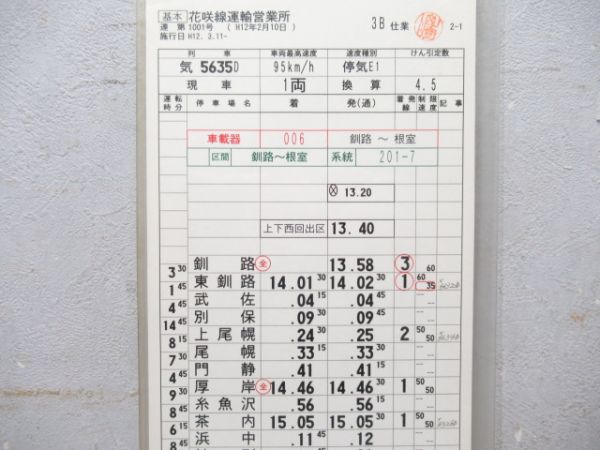 基本 花咲線運輸営業所 3B 仕業 2-1
運 第 1001号 ( H12年2月10日 )
施行日 H12. 3.11-
列 車 車両最高速度 速度種別 けん引定数
気 5635D 95km/h 停気E1
現 車 1両 換 算 4.5
運転時分 停車場名 着 発(通) 着発線 制限速度 記事
車載器 006 釧路 ～ 根室
区間 釧路～根室 系統 201-7
13.20
上下西回出区 13.40
釧 路 全 13.58 3 60
3 30 東釧路 14.01 30 14.02 30 1 60 35
1 45 武 佐 .04 15 .04 45
4 45 別 保 .09 30 .09 30
14 45 上尾幌 .24 30 .25 2 50 50
8 15 尾 幌 .33 15 .33 30
7 30 門 静 .41 .41
4 45 厚 岸 全 14.46 14.46 30 1 50 50
9 30 糸魚沢 .56 .56
8 45 茶 内 15.05 15.05 30 1 50 50
6 15 浜 中 .11 45 .12